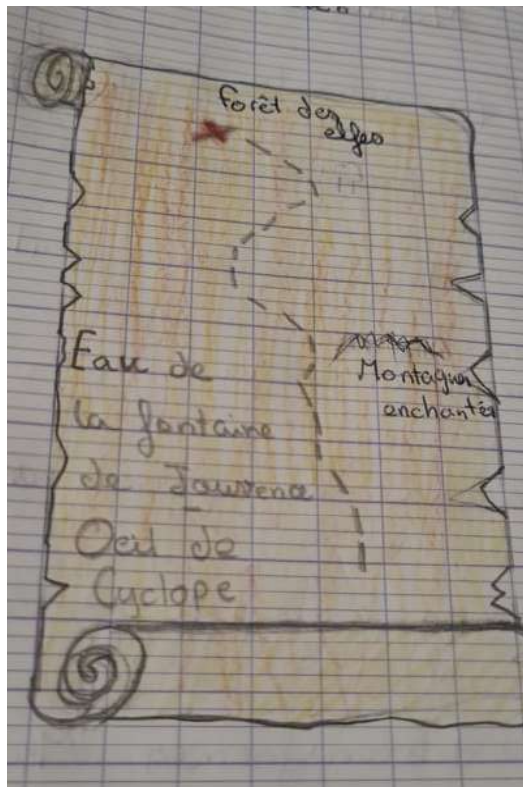 Forêt des
elfes
Montagnes
enchantées
Eau de
la fontaine
de Jouvence
-
Oeil de
Cyclope